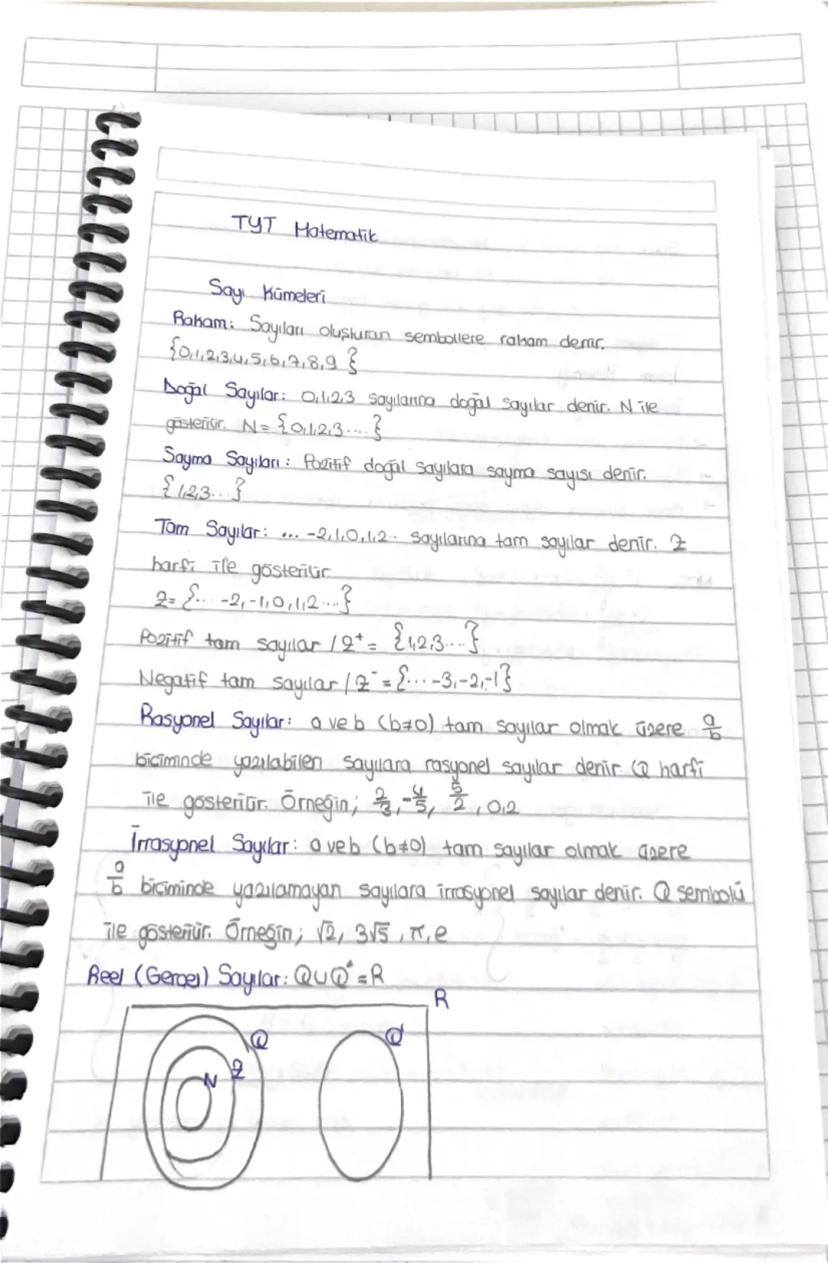 TYT Matematik
Sayı Kümeleri
Rakam: Sayıları oluşturan sembollere rakam denir.
{0,1,2,3,4,5,6,7,8,9}
Doğal Sayılar: 0,1,2,3 sayılarına doğal sayılar denir. N ile
gösterilir. N={0,1,2,3....}
Sayma Sayıları: Pozitif doğal sayılara sayma sayısı denir.
{1,2,3...}
Tam Sayılar: ... -2,1,0,1,2.. sayılarına tam sayılar denir. Z
harfi ile gösterilir
Z= {... -2,-1,0,1,2...}
Pozitif tam sayılar / Z⁺= {1,2,3....}
Negatif tam sayılar / Z⁻={... -3,-2,-1}
Rasyonel Sayılar: a ve b (b≠0) tam sayılar olmak üzere a/b
biçiminde yazılabilen sayılara rasyonel sayılar denir Q harfi
ile gösterilir. Örneğin; 2/3, -4/5, 5/2, 0,2
İrrasyonel Sayılar: a ve b (b≠0) tam sayılar olmak üzere
a/b biçiminde yazılamayan sayılara irrasyonel sayılar denir. Q sembolü
ile gösterilir. Örneğin; √2, 3√5, π, e
Reel (Gerçel) Sayılar: Q∪Q'=R
R
Q Q'
Z
N